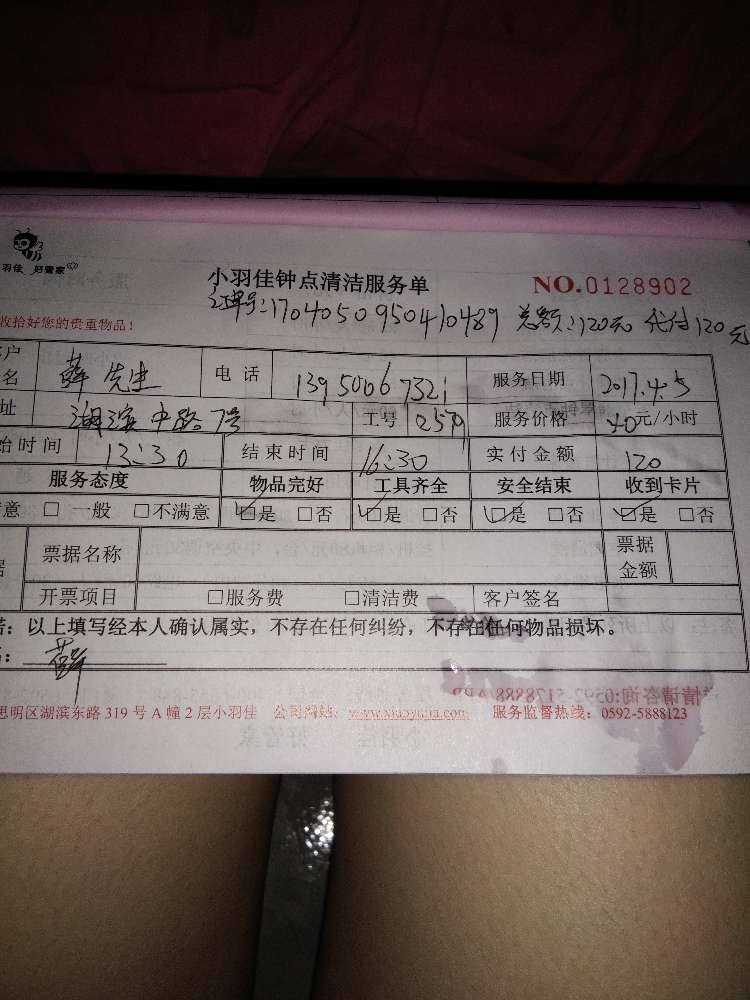 羽佳 好管家
小羽佳钟点清洁服务单 NO.0128902
订单号:170405095041 0489 总额:120元 代付120元
收拾好您的贵重物品!
客户
名 薛先生 电话 13950067321 服务日期 2017.4.5
址 湖滨中路7号 工号 0257 服务价格 40元/小时
始时间 13:30 结束时间 16:30 实付金额 120
服务态度 物品完好 工具齐全 安全结束 收到卡片
意 □ 一般 □不满意 □是 □否 □是 □否 □是 □否 □是 □否
据 票据名称 票据金额
开票项目 □服务费 □清洁费 客户签名
诺:以上填写经本人确认属实,不存在任何纠纷,不存在任何物品损坏。
: 薛
思明区湖滨东路 319 号 A 幢 2 层小羽佳 公司网站: www.xiaoyujia.com 服务监督热线: 0592-5888123